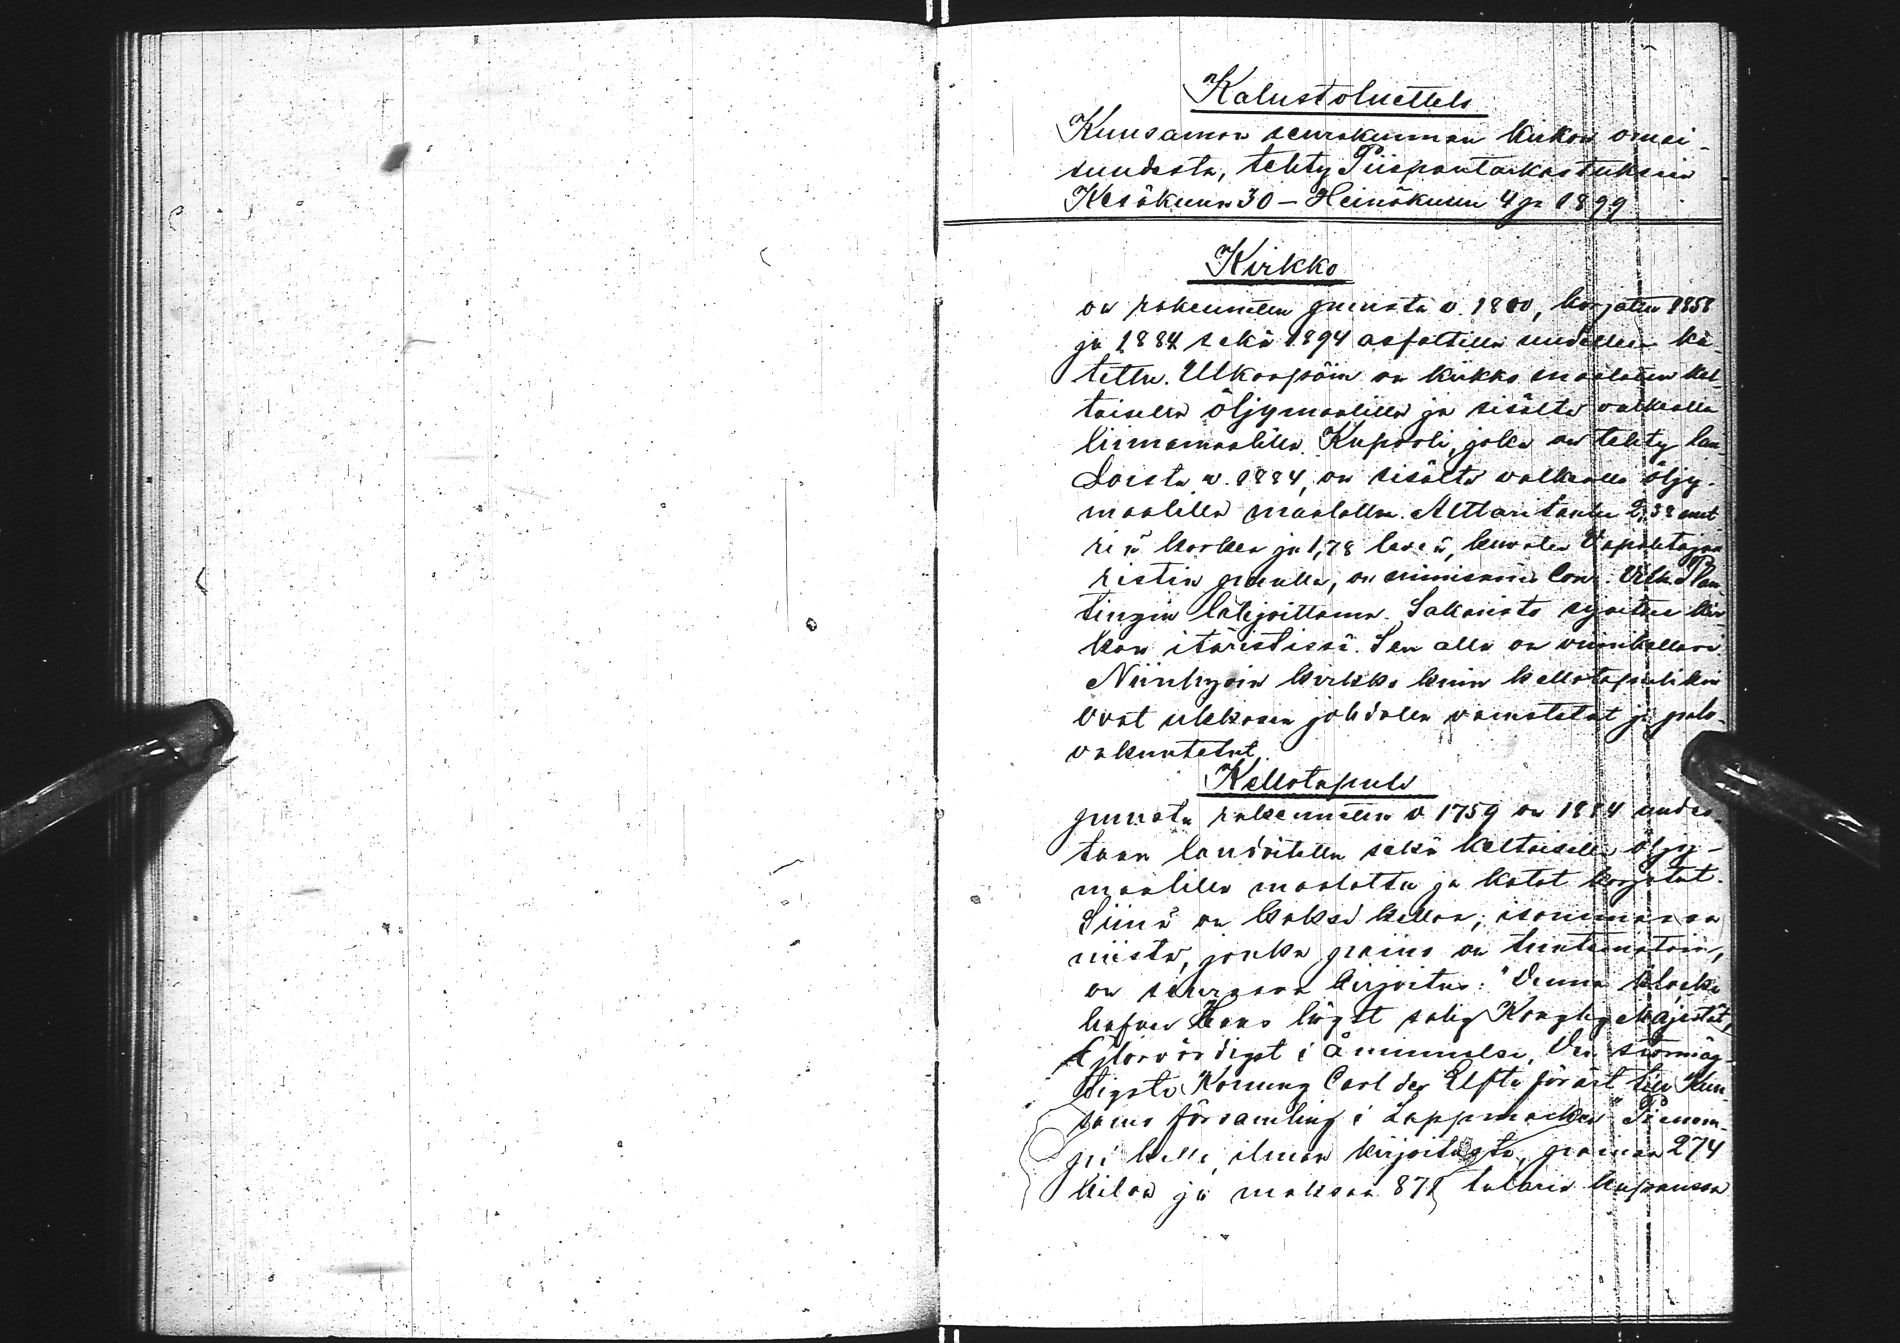 Kalustoluettelo
Kuusamon seurakunnan kirkon omai-
suudesta, tehty Piispantarkastuksessa
Kesäkuun 30 – Heinäkuun 4 p 1899
Kirkko
on rakennettu puusta v. 1800, korjattu 1858
ja 1884 sekä 1894 asfaltilla uudelleen ka-
tettu. Ulkoapäin on kirkko maalattu kel-
taisella öljymaalilla ja sisältä valkealla
liimamaalilla. Kupooli, joka on tehty lau-
doista v. 1884, on sisältä valkealla öljy-
maalilla maalattu. Alttaritaulu 2,38 met
riä korkea ja 1,78 leveä, kuvaten Vapahtajaa
ristin puulla, on nimismies Conr. Vilh.
tingin lahjoittama. Sakaristo sijaitsee kir
kon itäristissä. Sen alla on viinikellari.
Niinhyvin kirkko kuin kellotapulikin
ovat ukkosen johdolla varustetut ja palo-
vakuutetut.
Kellotapuli
puusta rakennettu v 1759 on 1884 uudes-
taan laudoitettu sekä keltaisella öljy-
maalilla maalattu ja katot korjatut.
Siinä on kaksi kelloa; isommassa
niistä, jonka paino on tuntematoin,
on seuraava kirjoitus: "Denna klocka
hafver Hans högst salig Konglig Majestät,
Glorvördigst i åminnelse, Den stormäg-
tigste Konung Carl den Elfte förärt till Kuu-
samo församling i Lappmarken" Pienem-
pi kello, ilman kirjoitusta, painaa 274
kiloa ja maksaa 871 talaria kuparissa